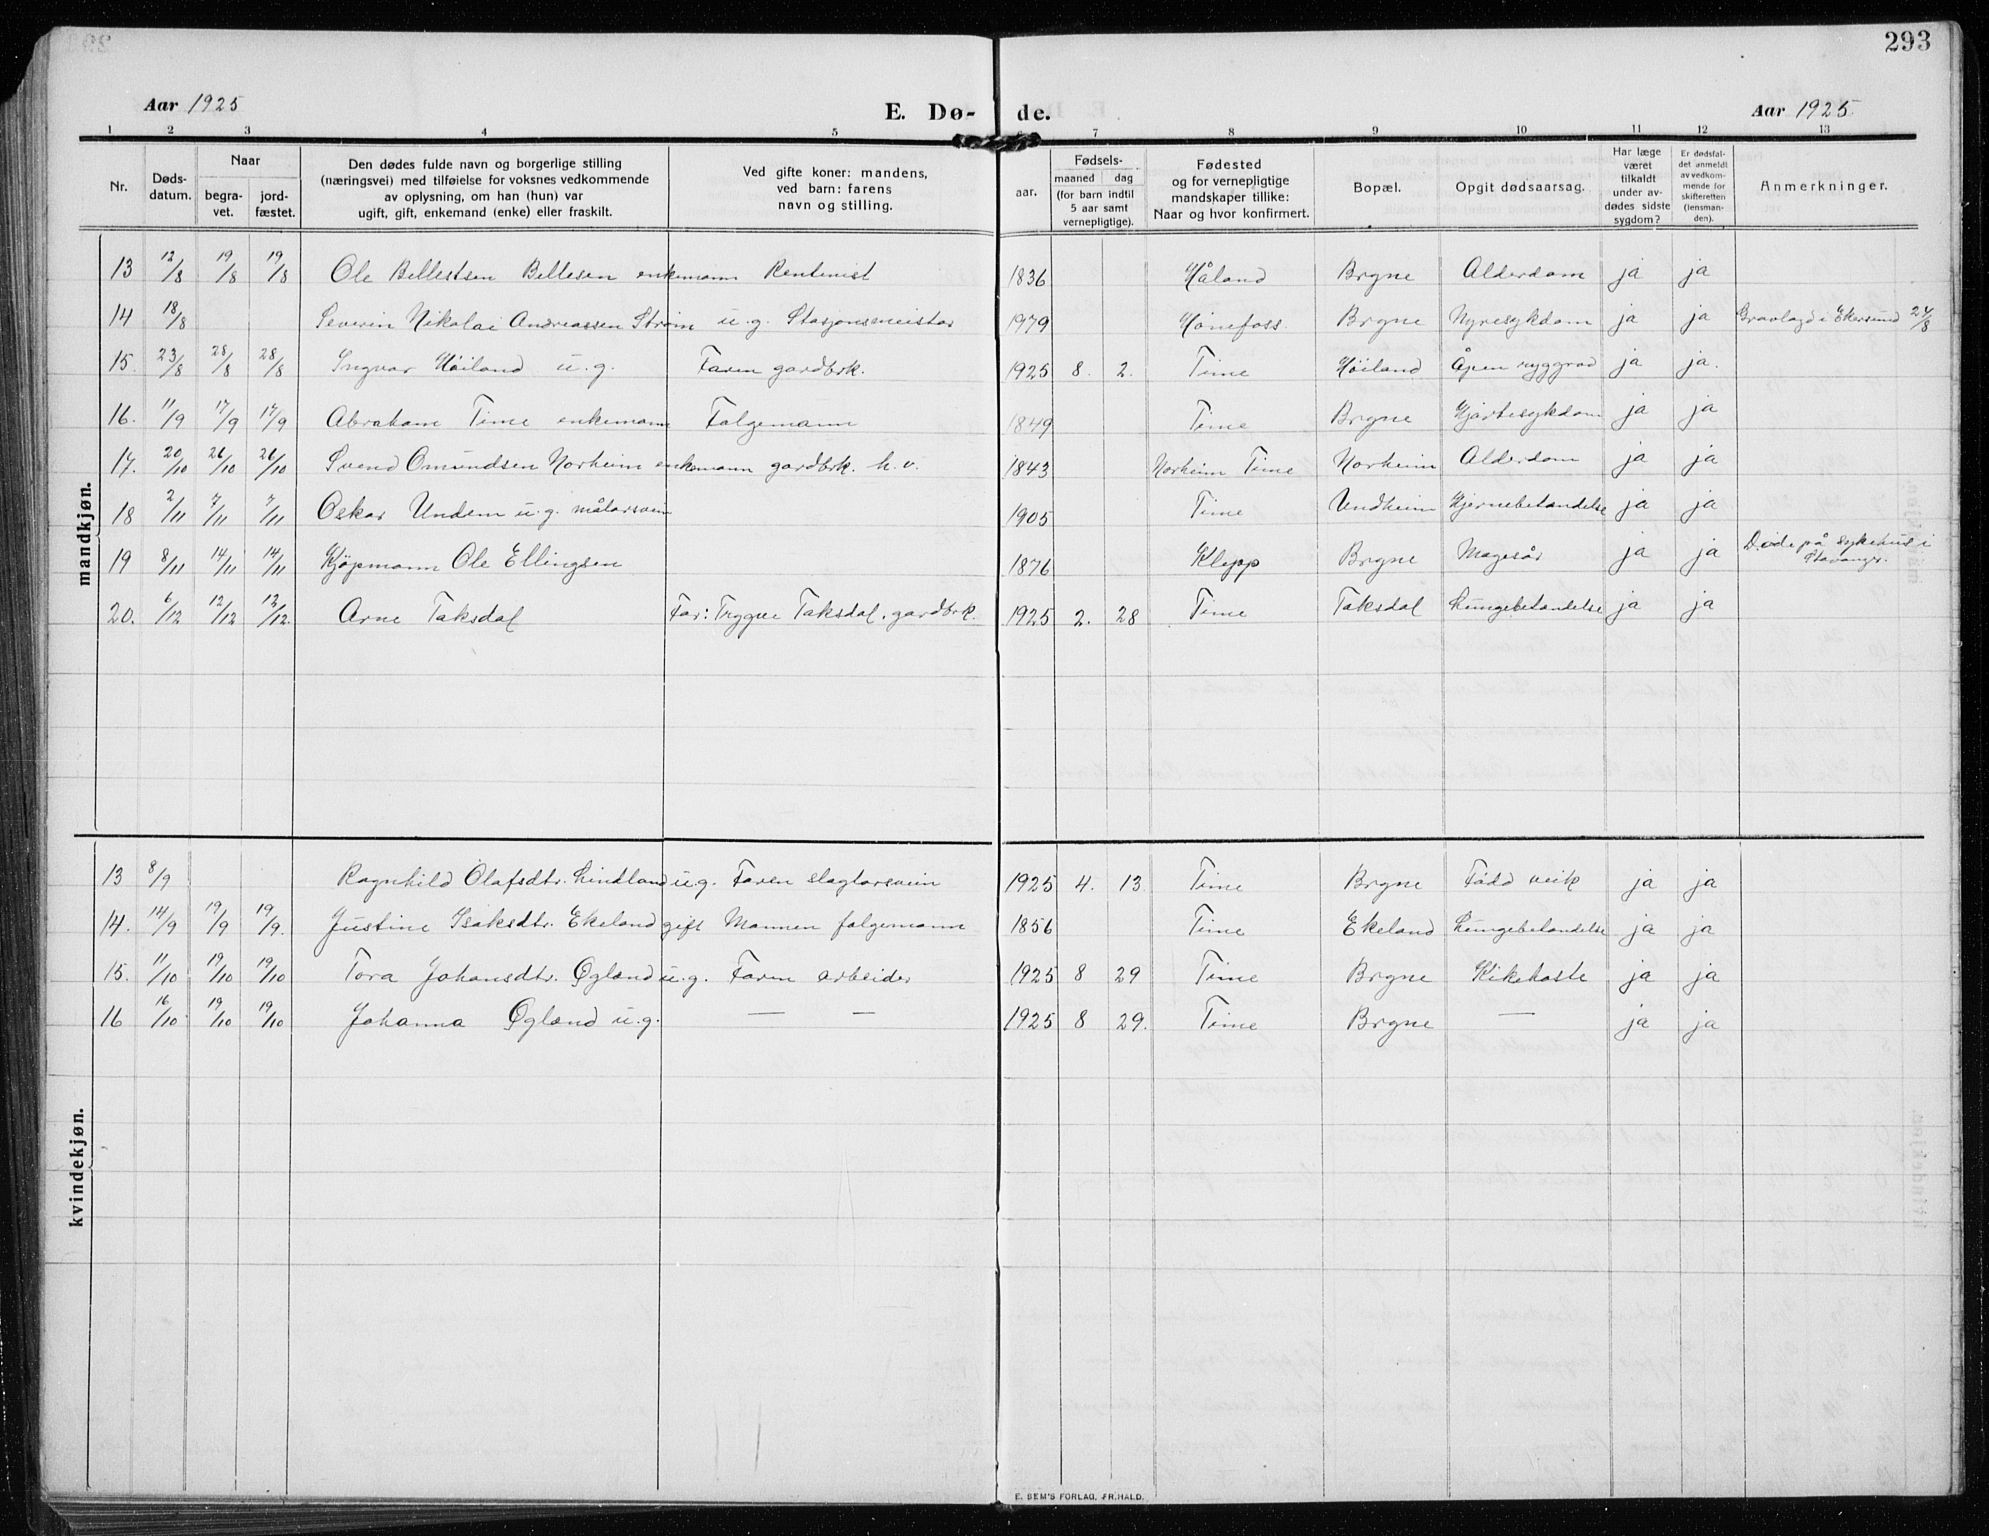 293
Aar 1925 E. Dø- de. Aar 1925
1 2 3 4 5 6 7 8 9 10 11 12 13
Nr. Døds-datum. Naar begra-vet. jord-fæstet. Den dødes fulde navn og borgerlige stilling (næringsvei) med tilføielse for voksnes vedkommende av oplysning, om han (hun) var ugift, gift, enkemand (enke) eller fraskilt. Ved gifte koner: mandens, ved barn: farens navn og stilling. Fødsels- aar. maaned dag (for barn indtil 5 aar samt vernepligtige). Fødested og for vernepligtige mandskaper tillike: Naar og hvor konfirmert. Bopæl. Opgit dødsaarsag. Har læge været tilkaldt under av-dødes sidste sygdom? Er dødsfal-det anmeldt av vedkom-mende for skifteretten (lensman-den). Anmerkninger.
mandkjøn.
13 12/8 19/8 19/8 Ole Bellestsen Bellesen enkemann Rentenist 1836 Håland Bryne Alderdom ja ja
14 18/8 Severin Nikolai Andreassen Strøm u.g. Stasjonsmeistar 1979 Hønefoss. Bryne Nyresykdom ja ja Gravlagd i Ekersund 24/8
15. 23/8 28/8 28/8 Ingvar Høiland u.g. Faren gardbrk. 1925 8. 2. Time Høiland Åpen ryggrad ja ja.
16. 11/9 17/9 17/9 Abraham Time enkemann Folgemann 1849 Time Bryne Hjartesykdom ja ja
17. 20/10 26/10 26/10 Svend Omundsen Norheim enkemann gardbrk. h.v. 1843 Norheim Time Norheim Alderdom ja ja
18 2/11 7/11 7/11 Oskar Undem u.g. målarsvein 1905 Time Undheim Hjernebetendelse ja ja
19 8/11 14/11 14/11 Kjöpmann Ole Ellingsen 1876 Klepp Bryne Magesår ja ja Døde på sykehus i Stavanger.
20. 6/12 12/12 12/12. Arne Taksdal Far: Trygve Taksdal, gardbrk. 1925 2. 28 Time Taksdal Lungebetendelse ja ja
kvindekjøn.
13 8/9 Ragnhild Olafsdtr. Lindland u.g. Faren slagtarsvein 1925 4. 13. Time Bryne Fødd veik ja ja
14. 14/9 19/9 19/9. Justine Isaksdtr. Ekeland gift Mannen folgemann 1856 Time Ekeland Lungebetendelse ja ja
15. 11/10 19/10 19/10 Tora Johansdtr. Øgland u.g. Faren arbeider 1925 8 29 Time Bryne Kikehoste ja ja
16 16/10 19/10 19/10 Johanna Øgland u.g. — — 1925 8 29. Time Bryne — ja ja
E. SEM'S FORLAG, FR.HALD.